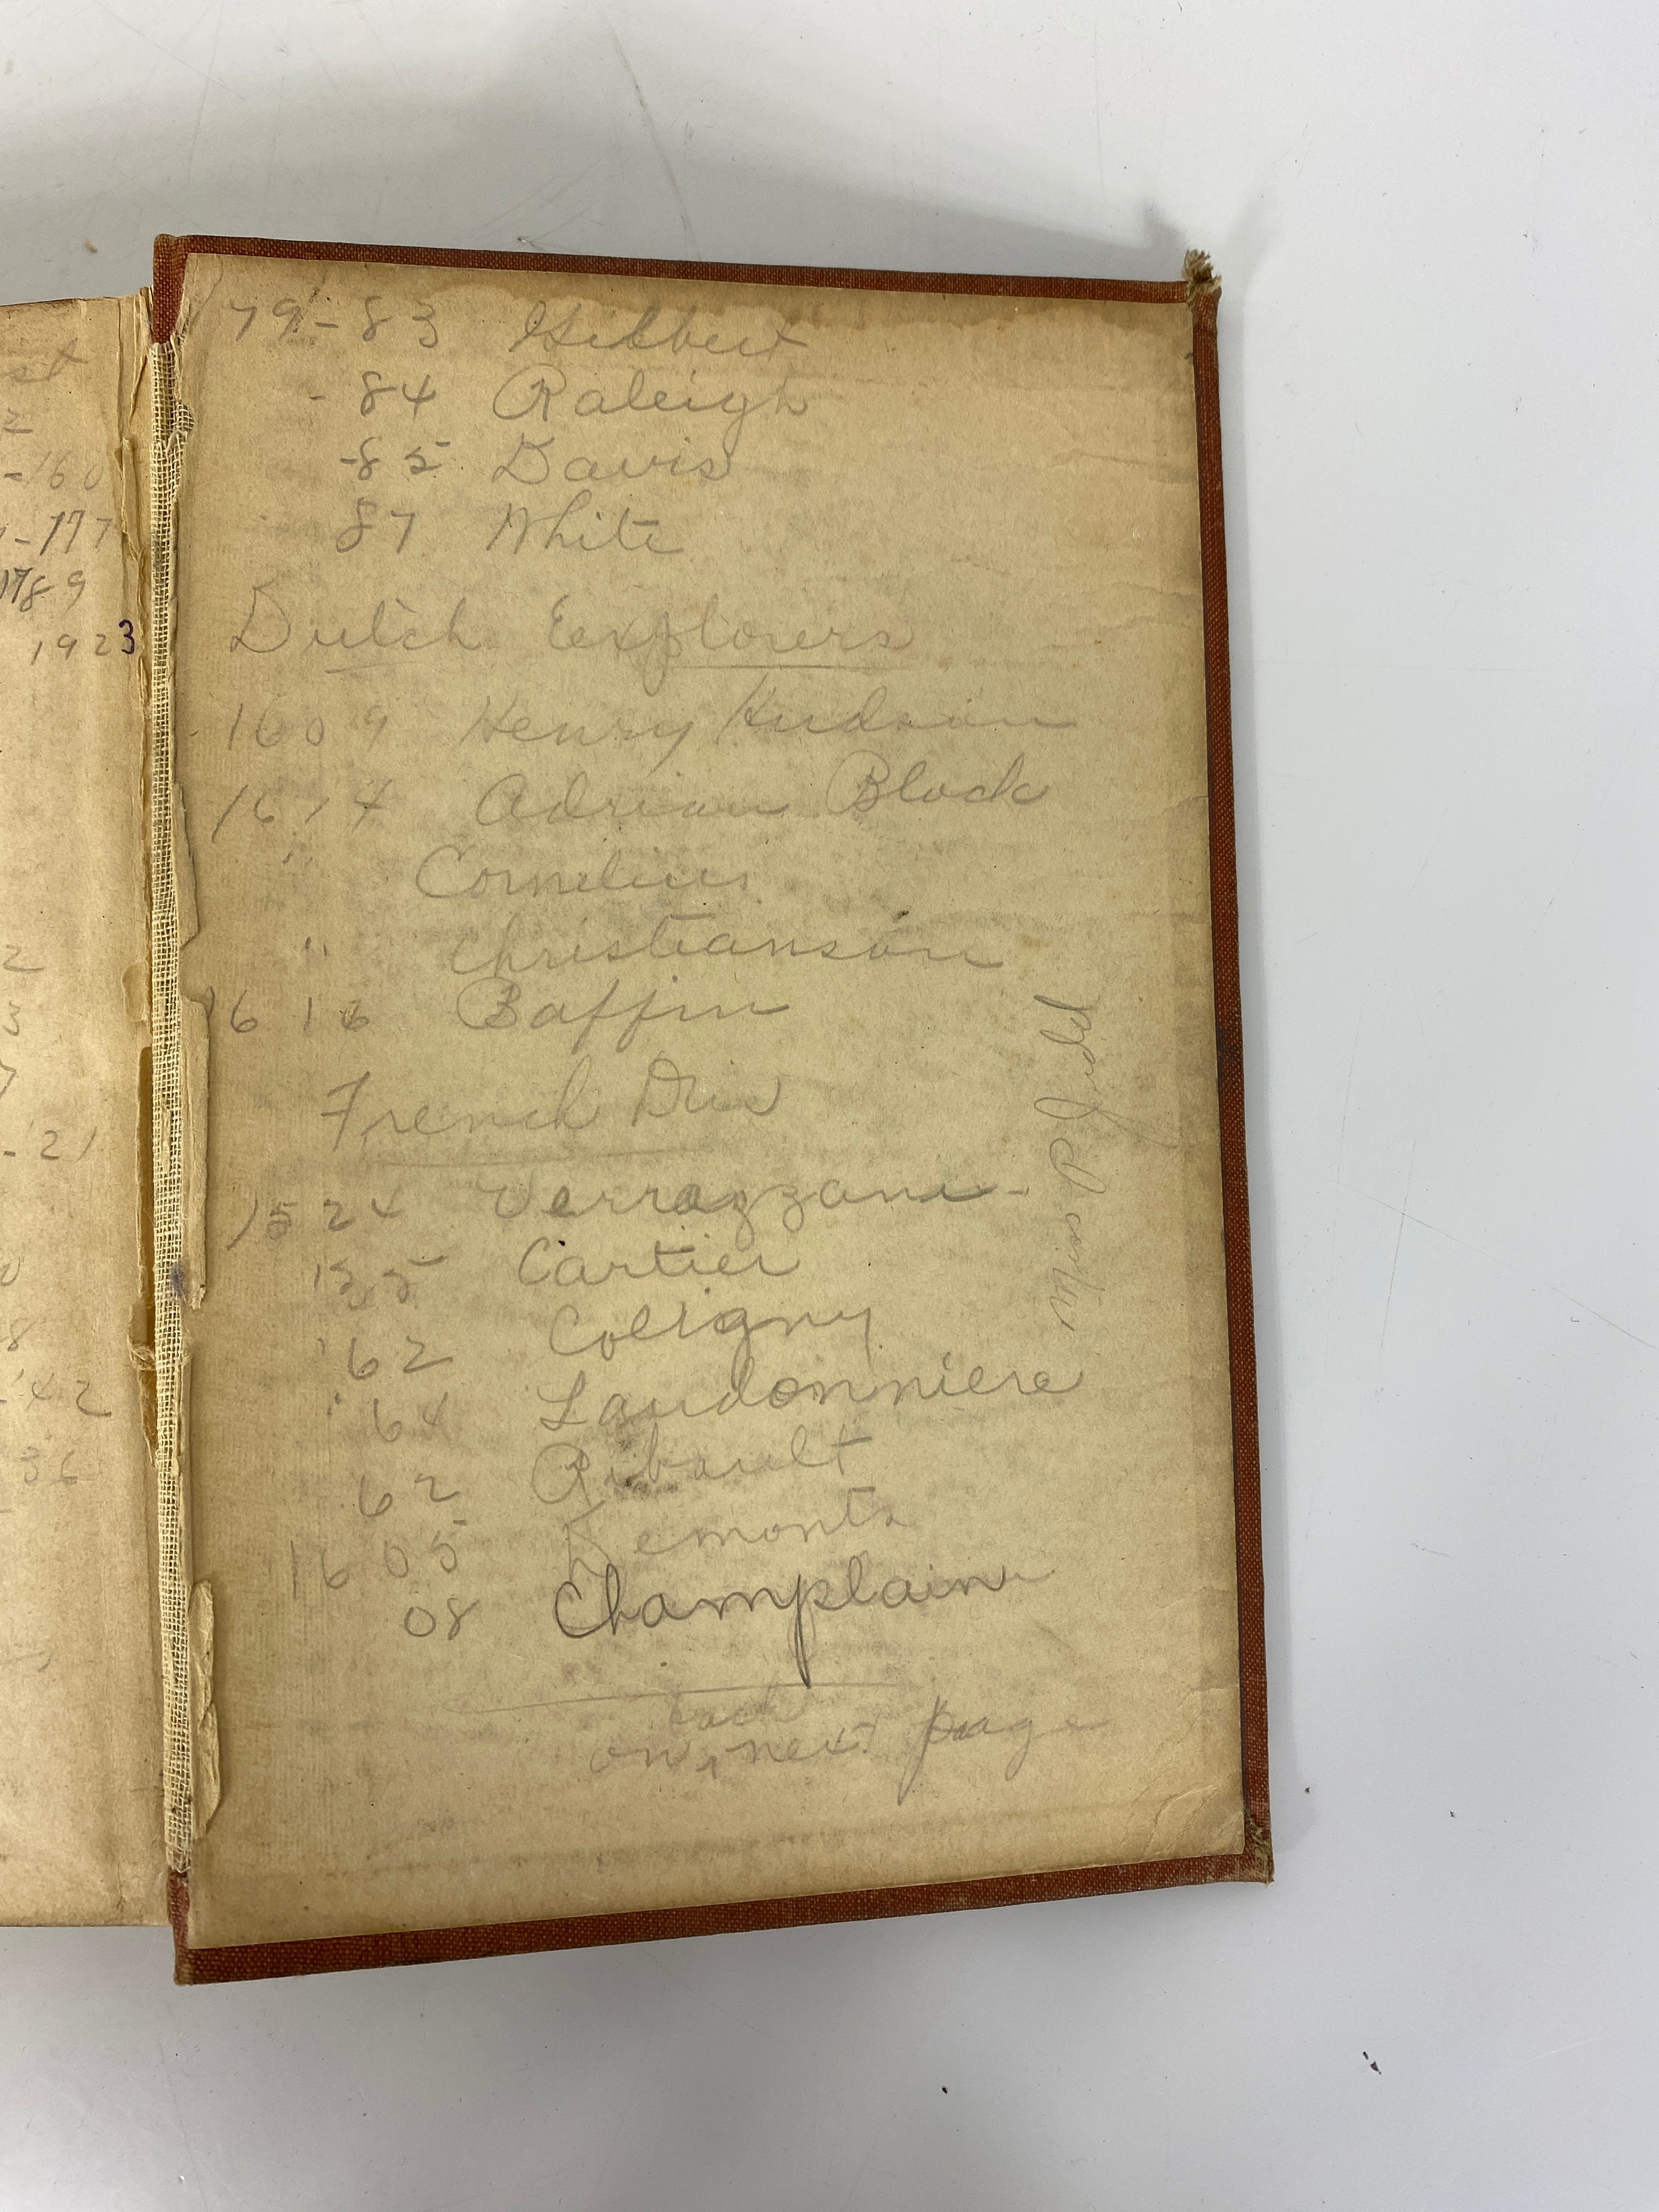 st
2
-160
-177
1789
1923
2
3
7
-'21
8
-'42
36
79-83 Gilbert
-84 Raleigh
-85 Davis
87 White
Dutch Explorers
1609 Henry Hudson
1614 Adrian Block
" Cornelius
" Christianson
1616 Baffin
French Div
1524 Verrazzani-
'35 Cartier
'62 Coligny
'64 Laudonniere
62 Ribault
1605 Demonts
08 Champlain
back
on ‸ next page
Miss P Judd